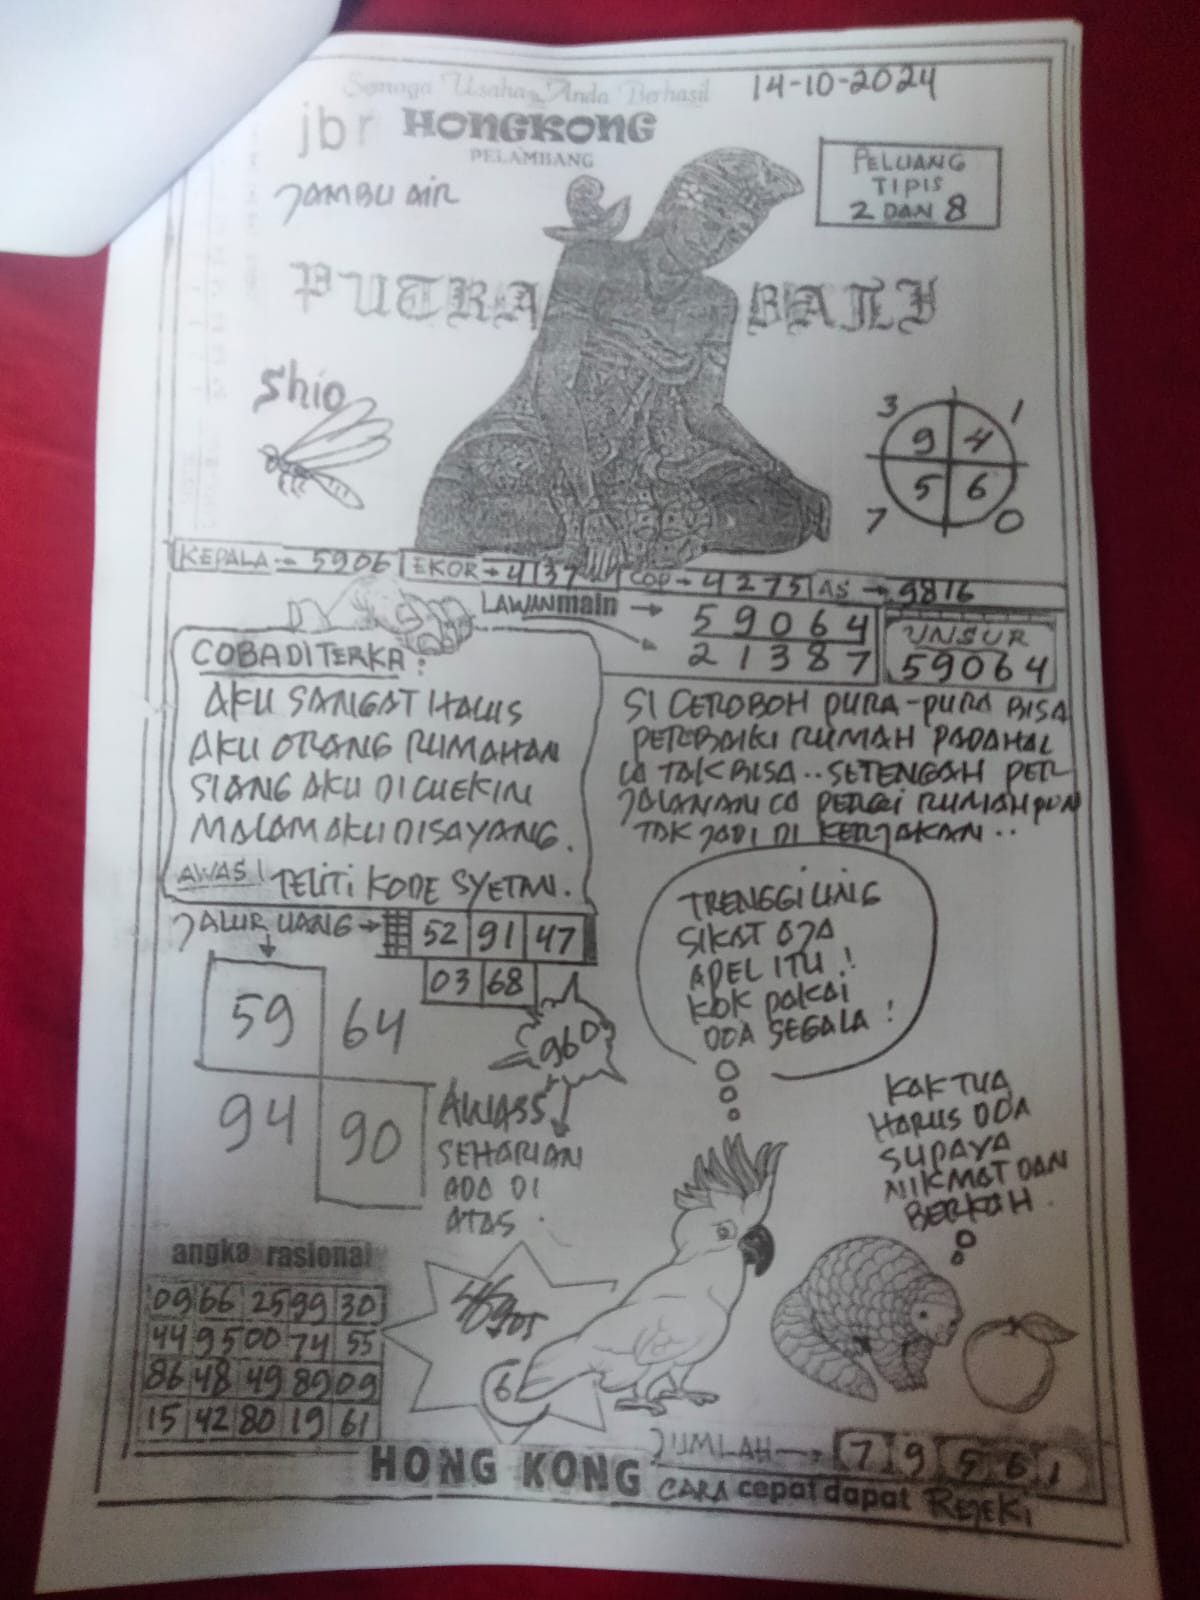 Semoga Usaha Anda Berhasil
14-10-2024
jbr HONGKONG
PELAMBANG
JAMBU AIR
PELUANG
TIPIS
2 DAN 8
PUTRA BALI
Shio
3 1
9 4
5 6
7 0
KEPALA → 5906 EKOR → 4137 COP → 4275 AS → 9816
LAWAN main → 59064
21387
UNSUR
59064
COBA DITERKA:
AKU SANGAT HALUS
AKU ORANG RUMAHAN
SIANG AKU DICUEKIN
MALAM AKU DISAYANG.
AWAS! TELITI KODE SYETAN.
SI CEROBOH PURA-PURA BISA
PERBAIKI RUMAH PADAHAL
IA TAK BISA.. SETENGAH PER
JALANAN IA PERGI RUMAH PUN
TAK JADI DI KERJAKAN..
JALUR UANG → 52 91 47
03 68
59 64
94 90
960
AWASS
SEHARIAN
ADA DI
ATAS.
TRENGGILING
SIKAT AJA
APEL ITU!
KOK PAKAI
DOA SEGALA!
KAKTUA
HARUS DOA
SUPAYA
NIKMAT DAN
BERKAH.
angka rasional
09 66 25 99 30
44 95 00 74 55
86 48 49 89 09
15 42 80 19 61
6
JUMLAH → 7 9 5 6 1
HONG KONG CARA cepat dapat REJEKI